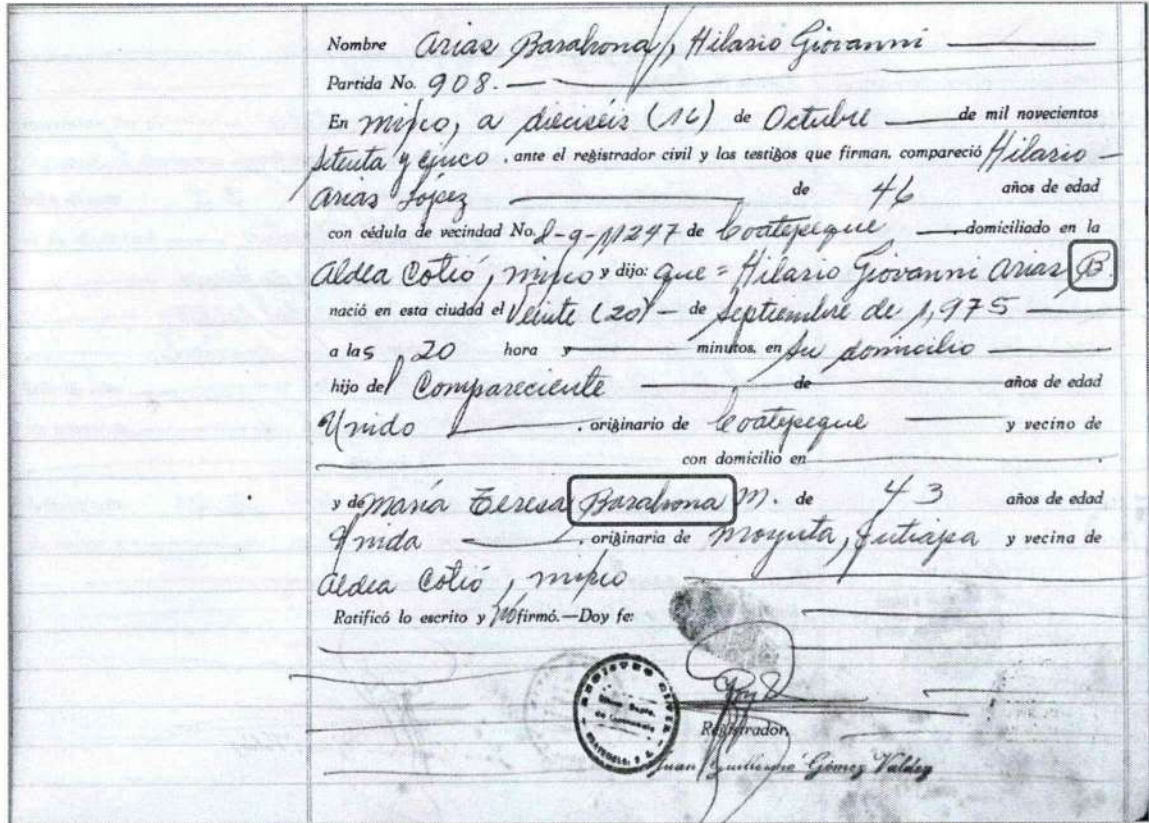 Nombre Arias Barahona, Hilario Giovanni
Partida No. 908.
En Mixco, a dieciséis (16) de Octubre de mil novecientos
Setenta y cinco, ante el registrador civil y los testigos que firman, compareció Hilario
Arias López de 46 años de edad
con cédula de vecindad No. I-9-11247 de Coatepeque domiciliado en la
Aldea Cotió, Mixco y dijo: que = Hilario Giovanni Arias B.
nació en esta ciudad el Veinte (20) - de Septiembre de 1,975
a las 5,20 hora y minutos, en su domicilio
hijo del Compareciente de años de edad
Unido, originario de Coatepeque y vecino de
con domicilio en
y de María Teresa Barahona M. de 43 años de edad
Unida, originaria de Moyuta, Jutiapa y vecina de
Aldea Cotió, Mixco
Ratificó lo escrito y No firmó.—Doy fe:
REGISTRO CIVIL
GUATEMALA, C. A.
Registrador,
Juan Guillermo Gómez Valdez